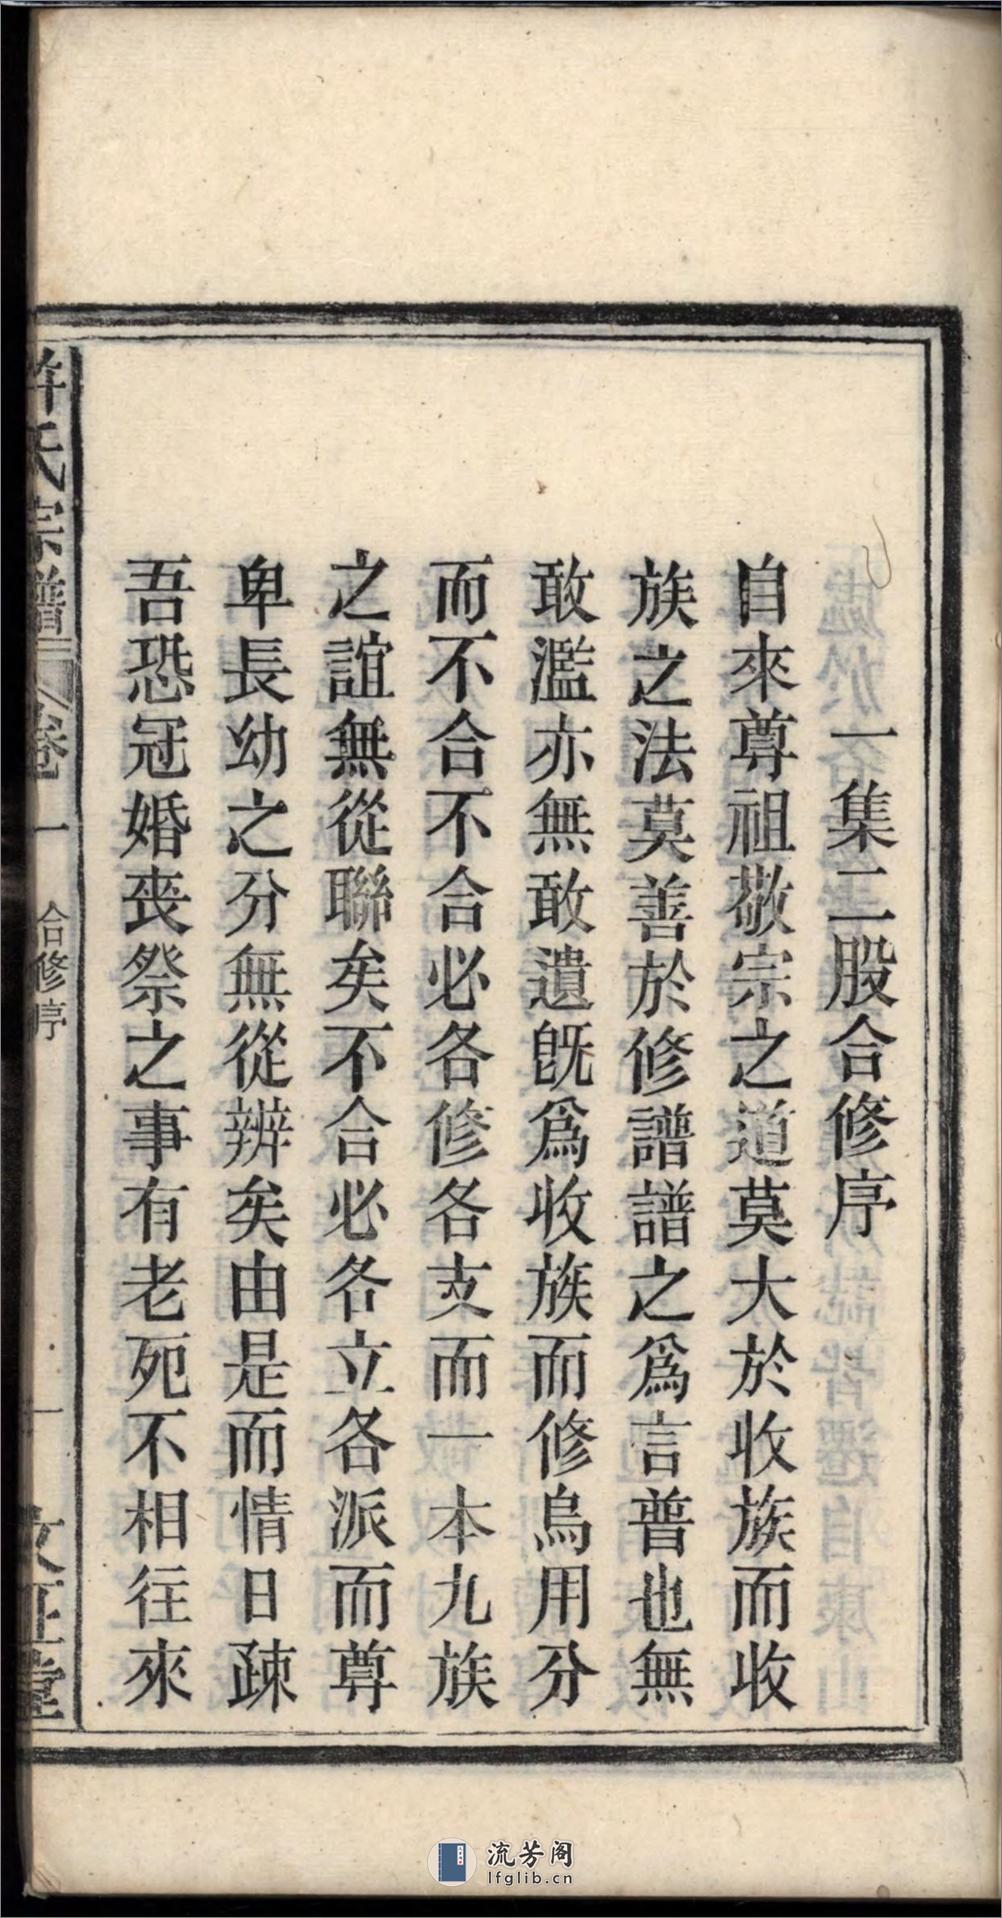 一集二股合修序
自來尊祖敬宗之道莫大於收族而收
族之法莫善於修譜譜之爲言普也無
敢濫亦無敢遺旣爲收族而修烏用分
而不合不合必各修各支而一本九族
之誼無從聯矣不合必各立各派而尊
卑長幼之分無從辨矣由是而情日疎
吾恐冠婚喪祭之事有老死不相往來
許氏宗譜
卷一
合修序
一
流芳阁
lfglib.cn